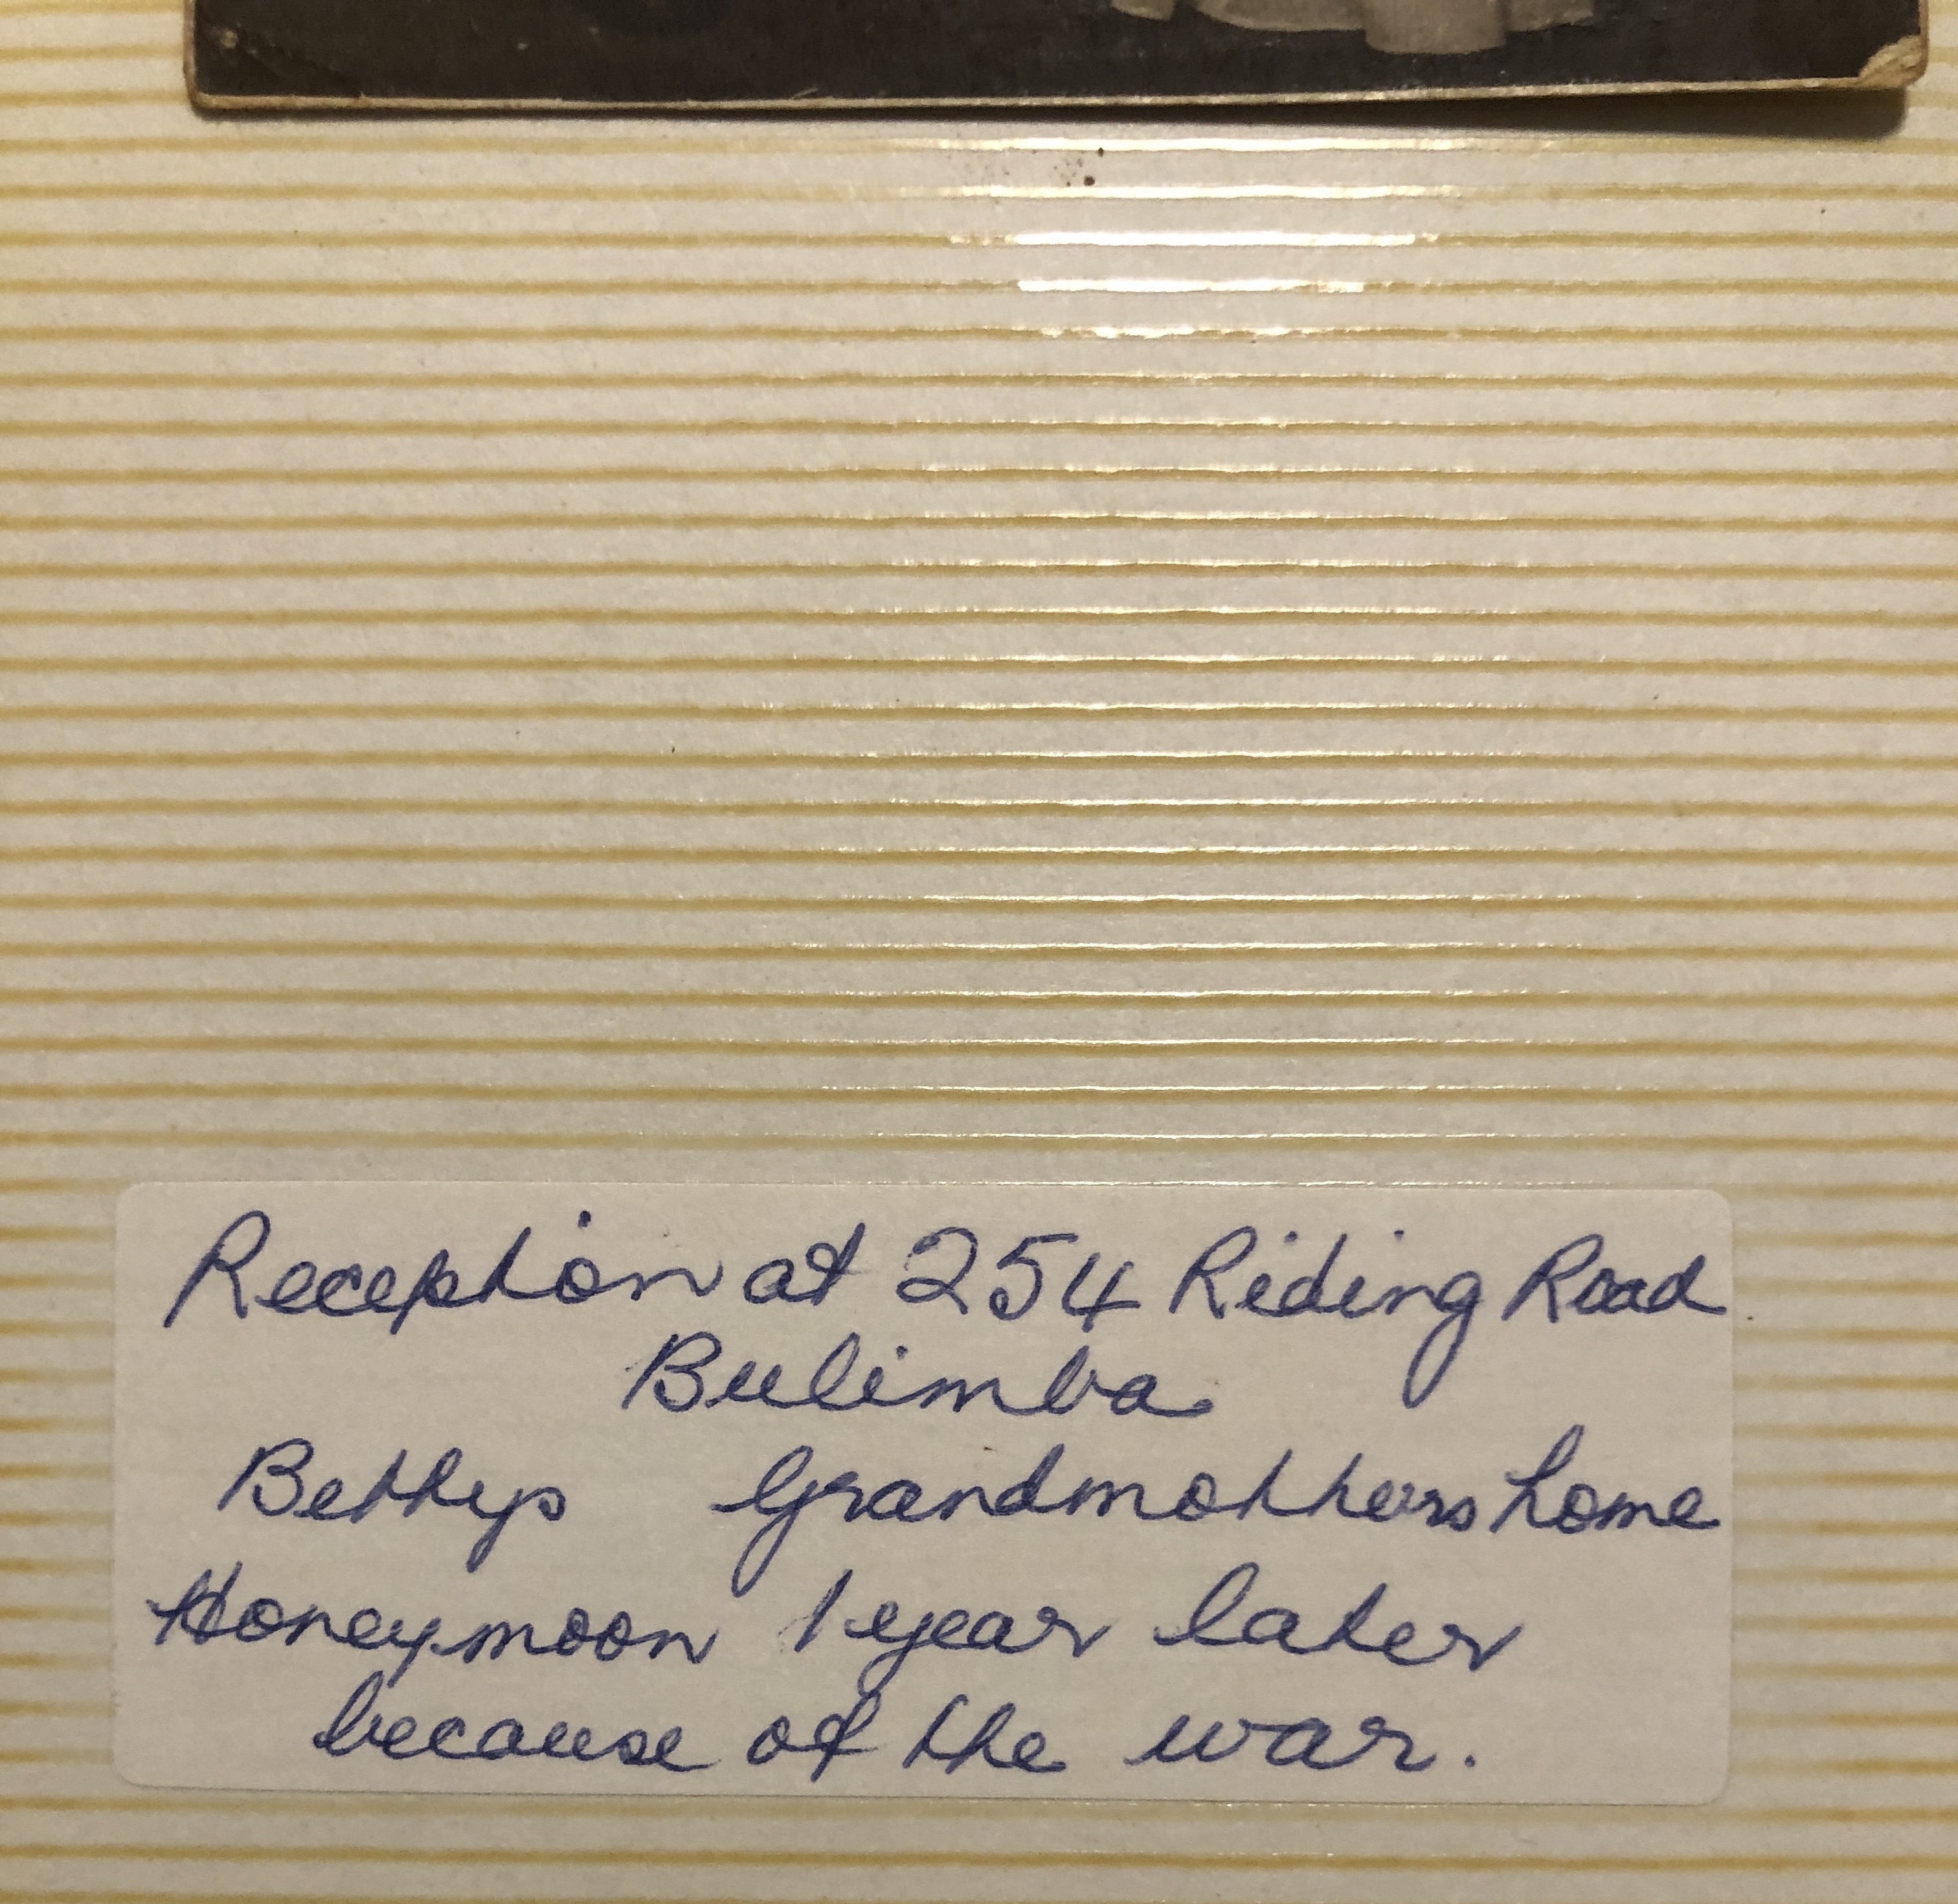 Reception at 254 Riding Road
Bulimba
Bettys Grandmothers home
Honeymoon 1 year later
because of the war.